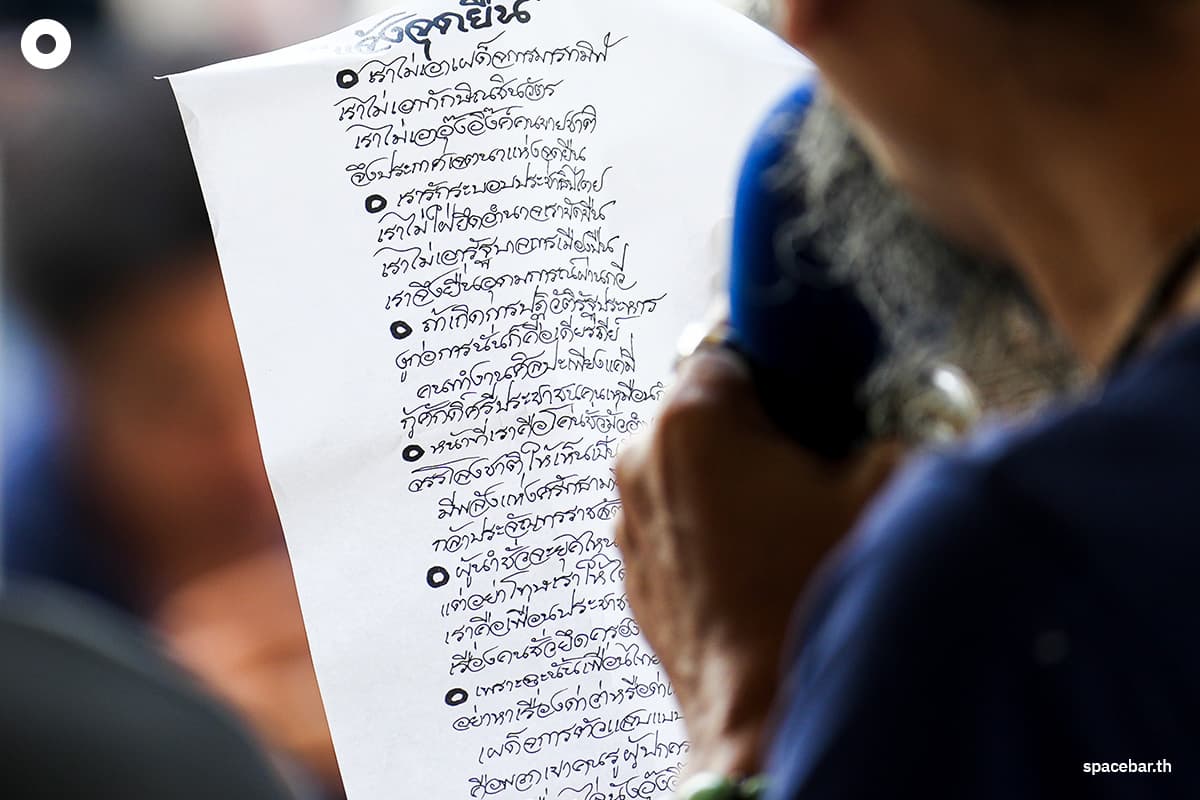 จุดยืน
เราไม่เอาเผด็จการมารทมิฬ
เราไม่เอาทักษิณชินวัตร
เราไม่เอาอุ๊งอิ๊งค์คนขายชาติ
จึงประกาศเจตนาแห่งจุดยืน
เรารักระบอบประชาธิปไตย
เราไม่ใฝ่ยึดอำนาจเราขัดขืน
เราไม่เอารัฐบาลการเมืองปืน
เราจึงยืนอุดมการณ์ผ่านกวี
ถ้าเกิดการปฏิวัติรัฐประหาร
ผู้ก่อการนั่นก็คือเดียรถีย์
คนทำงานศิลปะเพียงแค่มี
กู้ศักดิ์ศรีประชาชนคน
หน้าที่เราคือโค่นชั่ว
จรรโลงชาติให้เห็น
มีพลังแห่งศรัทธา
กล้าประจัญ
ผู้นำชั่วจะยุคไหน
แต่อย่าโทษเราให้
เราคือเพื่อนประชาช
เรื่องคนชั่วยึดครอง
เพราะฉะนั้นเพื่อนไทย
อย่าหาเรื่องด่าว่าหรือ
เผด็จการตัวแสบ
คือพวกเขาคน
spacebar.th